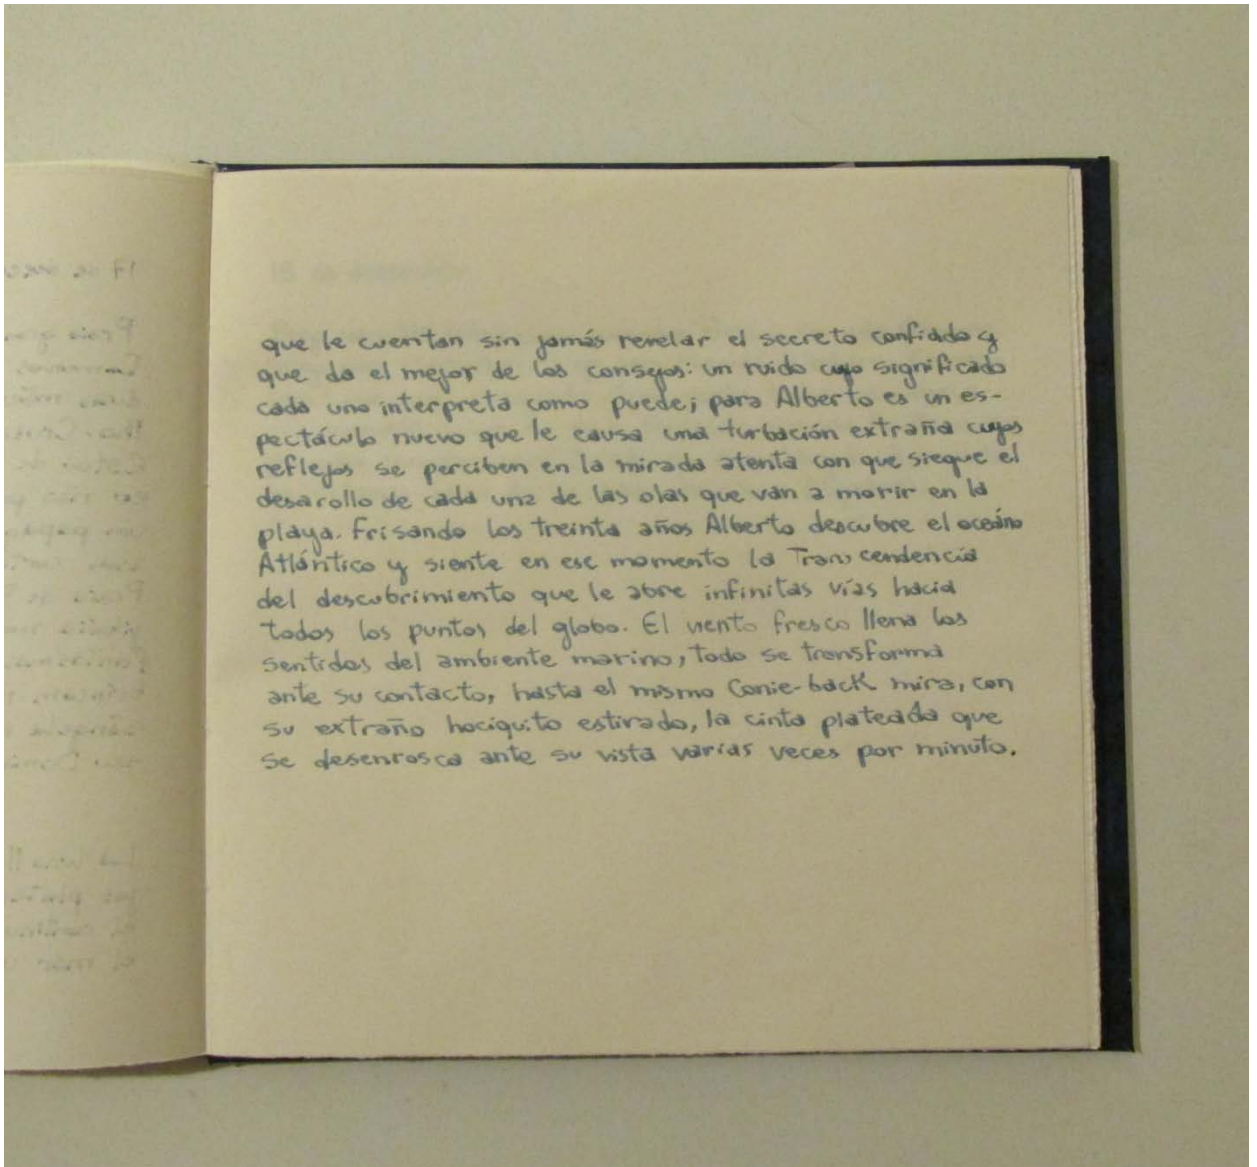 que le cuentan sin jamás revelar el secreto confiado y
que da el mejor de los consejos: un ruido cuyo significado
cada uno interpreta como puede; para Alberto es un es-
pectáculo nuevo que le causa una turbación extraña cuyos
reflejos se perciben en la mirada atenta con que siegue el
desarollo de cada una de las olas que van a morir en la
playa. Frisando los treinta años Alberto descubre el oceáno
Atlántico y siente en ese momento la Transcendencia
del descubrimiento que le abre infinitas vías hacia
todos los puntos del globo. El viento fresco llena los
sentidos del ambiente marino, todo se transforma
ante su contacto, hasta el mismo Comie-back mira, con
su extraño hociquito estirado, la cinta plateada que
se desenrosca ante su vista varias veces por minuto.